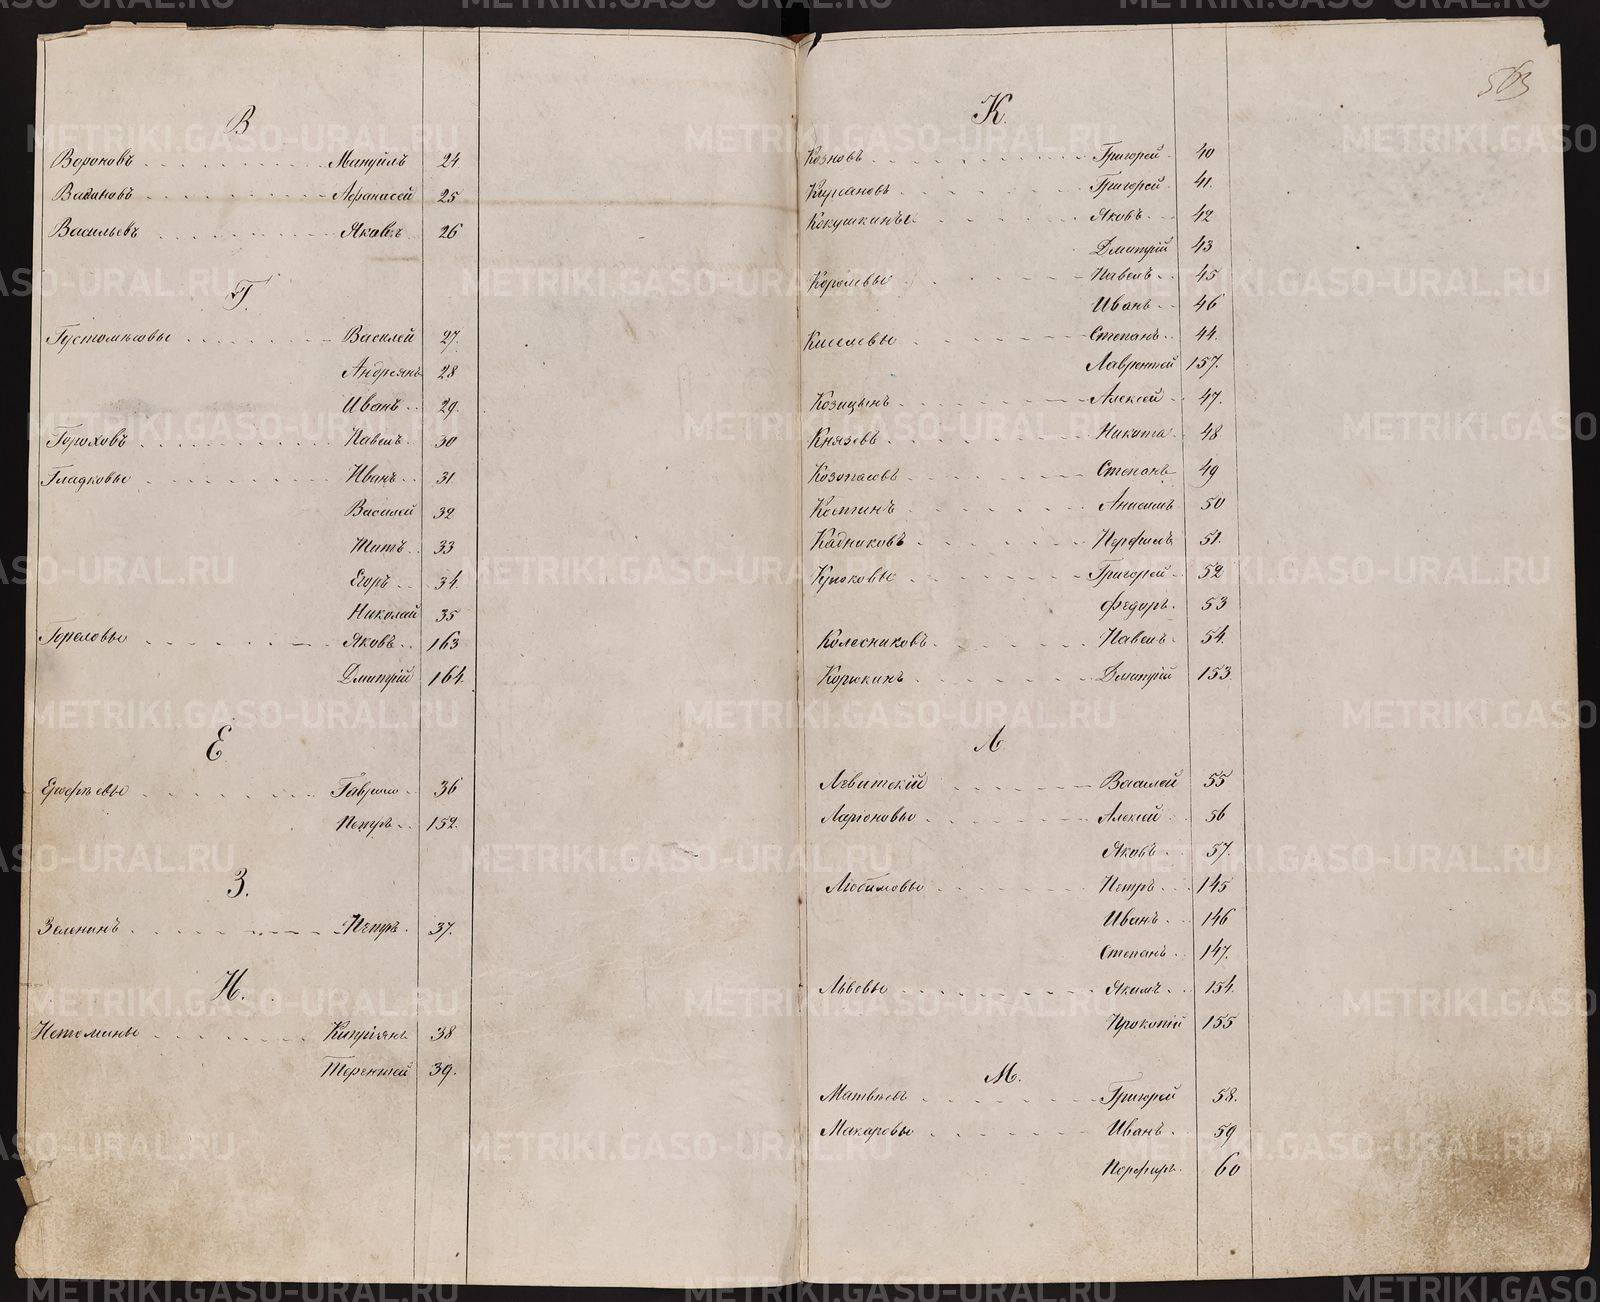 В
Вороновъ Мануилъ 24
Вагановъ Афанасей 25
Васильевъ Яковъ 26
Г.
Густомѣсовы Василей 27.
Андреянъ 28
Иванъ 29.
Гороховъ Павелъ 30
Гладковы Иванъ 31
Василей 32
Титъ 33
Егоръ 34.
Николай 35
Гореловы Яковъ 163
Дмитрій 164.
Е
Ерофѣевы Гаврило 36
Петръ 152.
З.
Зеленинъ Петръ 37.
И.
Истомины Кипріянъ 38
Терентей 39.
563
К.
Козновъ Григорей 40
Григорей 41.
Кокушкины Яковъ 42
Дмитрій 43
Королевы Павелъ 45
Иванъ 46
Киселевы Степанъ 44.
Лаврентей 157.
Козицынъ Алексей 47.
Князевъ Никита 48
Козопасовъ Степанъ 49
Анисимъ 50
Кадниковъ Перфилъ 51.
Крюковы Григорей 52
Федоръ 53
Колесниковъ Павелъ 54.
Корюкинъ Дмитрій 153.
Л
Левитскій Василей 55
Ларіоновы Алексей 56
Яковъ 57.
Любимовы Петръ 145
Иванъ 146
Степанъ 147.
Львовы Якимъ 154.
Прокопій 155
М.
Матвѣевъ Григорей 58.
Макаровы Иванъ 59
Порфиръ 60
METRIKI.GASO-URAL.RU